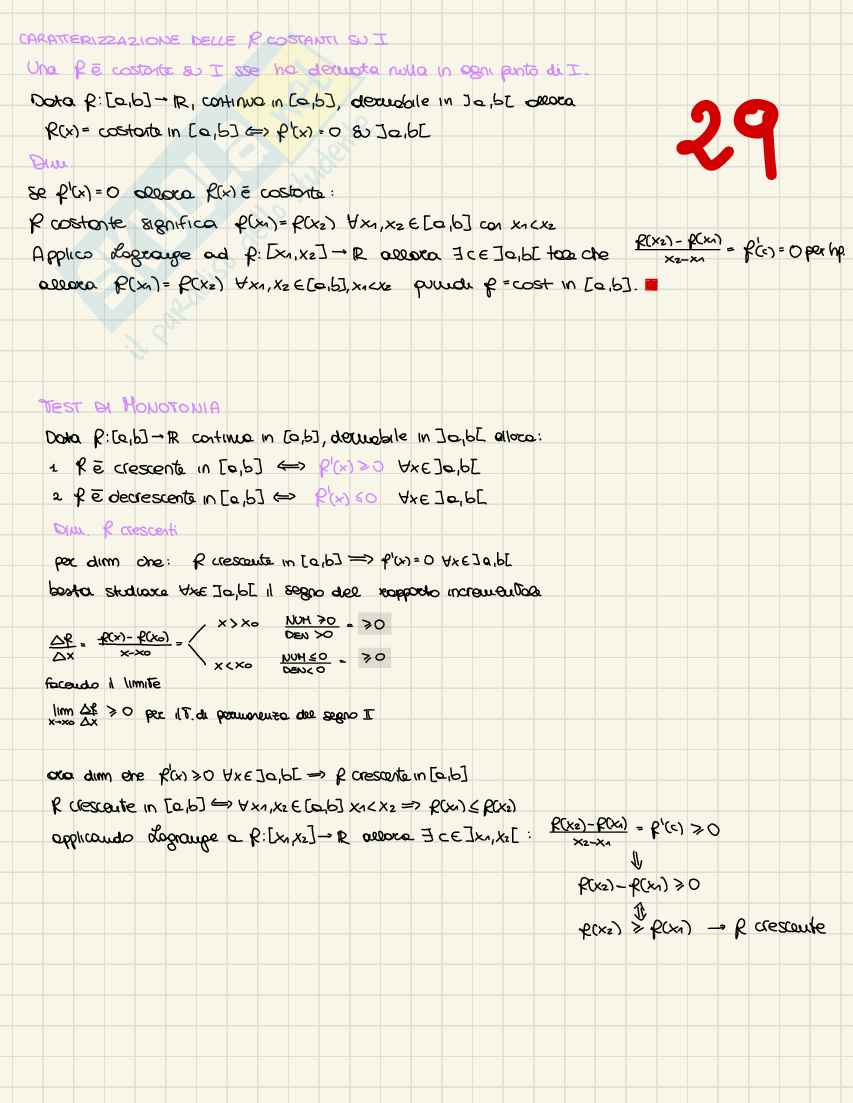 CARATTERIZZAZIONE DELLE f COSTANTI SU I
Una f è costante su I sse ha derivata nulla in ogni punto di I.
29
Data f: [a,b] → ℝ, continua in [a,b], derivabile in ]a,b[ allora
f(x) = costante in [a,b] ⟺ f'(x) = 0 su ]a,b[
Dim.
se f'(x) = 0 allora f(x) è costante:
f costante significa f(x₁) = f(x₂) ∀x₁,x₂ ∈ [a,b] con x₁<x₂
Applico Lagrange ad f: [x₁,x₂] → ℝ allora ∃ c ∈ ]a,b[ tale che (f(x₂) - f(x₁))/(x₂-x₁) = f'(c) = 0 per hp
allora f(x₁) = f(x₂) ∀x₁,x₂ ∈ [a,b], x₁<x₂ quindi f = cost in [a,b]. ■
SKUOLA.net
il paradiso dello studente
TEST DI MONOTONIA
Data f: [a,b] → ℝ continua in [a,b], derivabile in ]a,b[ allora:
1 f è crescente in [a,b] ⟺ f'(x) ≥ 0 ∀x ∈ ]a,b[
2 f è decrescente in [a,b] ⟺ f'(x) ≤ 0 ∀x ∈ ]a,b[
Dim. f crescenti
per dim che: f crescente in [a,b] ⟹ f'(x) = 0 ∀x ∈ ]a,b[
basta studiare ∀x∈ ]a,b[ il segno del rapporto incrementale
Δf/Δx = (f(x) - f(x₀))/(x-x₀) =
x > x₀ NUM ≥0 / DEN >0 = ≥0
x < x₀ NUM ≤0 / DEN <0 = ≥0
facendo il limite
lim x→x₀ Δf/Δx ≥ 0 per il T. di permanenza del segno II
ora dim che f'(x) ≥ 0 ∀x ∈ ]a,b[ ⟹ f crescente in [a,b]
f crescente in [a,b] ⟺ ∀x₁,x₂ ∈ [a,b] x₁<x₂ ⟹ f(x₁) ≤ f(x₂)
applicando Lagrange a f: [x₁,x₂] → ℝ allora ∃ c ∈ ]x₁,x₂[ : (f(x₂) - f(x₁))/(x₂-x₁) = f'(c) ≥ 0
⇓
f(x₂) - f(x₁) ≥ 0
⇕
f(x₂) ≥ f(x₁) → f crescente